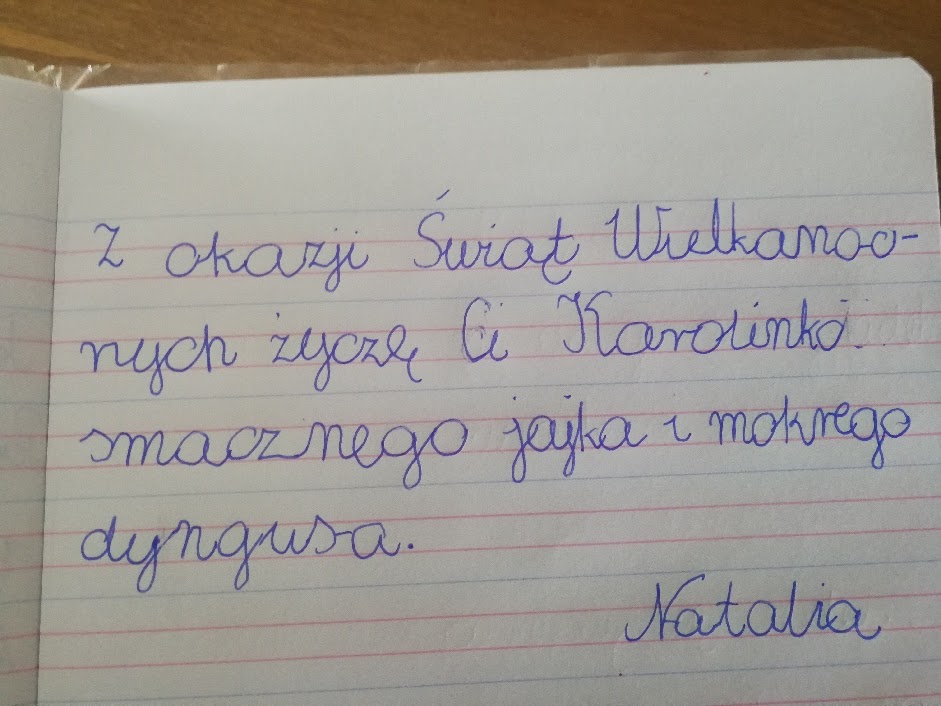 Z okazji Świąt Wielkanoc-
nych życzę Ci Karolinko
smacznego jajka i mokrego
dyngusa.
Natalia